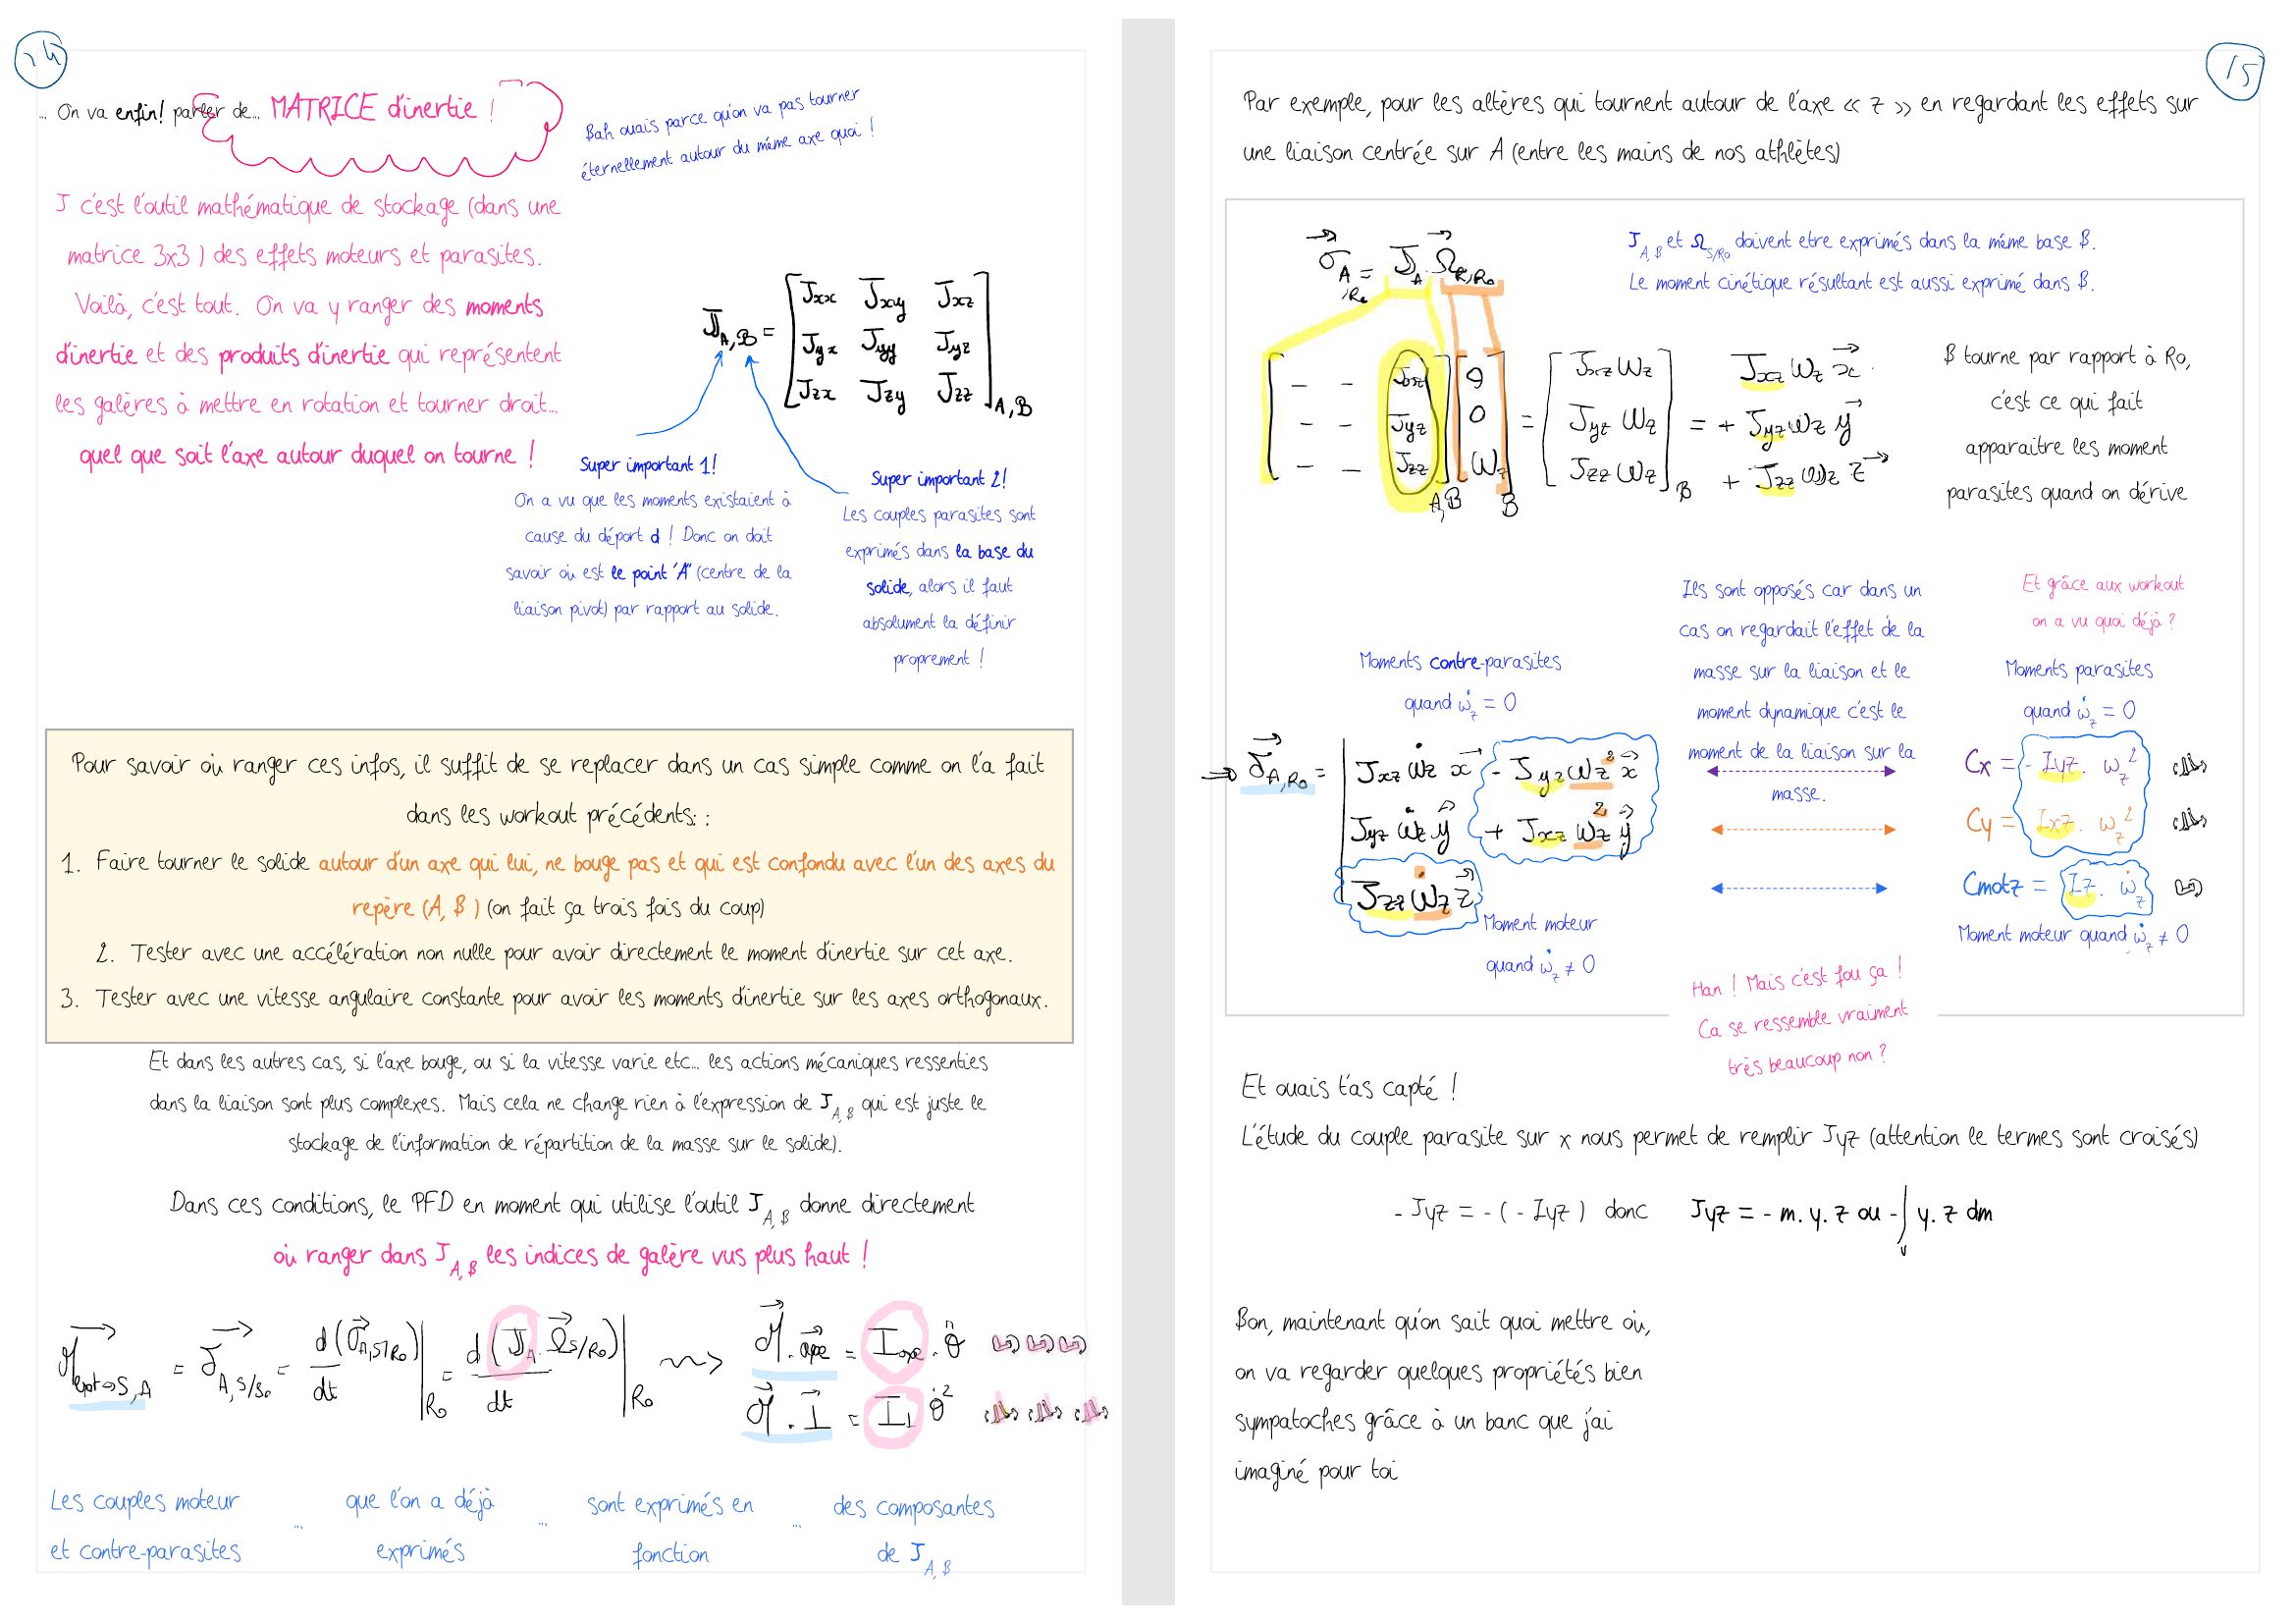 14
... On va enfin! parler de... MATRICE d'inertie !
Bah ouais parce qu'on va pas tourner
éternellement autour du même axe quoi !
J c'est l'outil mathématique de stockage (dans une
matrice 3x3 ) des effets moteurs et parasites.
Voilà, c'est tout. On va y ranger des moments
d'inertie et des produits d'inertie qui représentent
les galères à mettre en rotation et tourner droit...
quel que soit l'axe autour duquel on tourne !
J A,B = [ Jxx Jxy Jxz
Jyx Jyy Jyz
Jzx Jzy Jzz ] A,B
Super important 1!
On a vu que les moments existaient à
cause du déport d ! Donc on doit
savoir où est le point "A" (centre de la
liaison pivot) par rapport au solide.
Super important 2!
Les couples parasites sont
exprimés dans la base du
solide, alors il faut
absolument la définir
proprement !
Pour savoir où ranger ces infos, il suffit de se replacer dans un cas simple comme on l'a fait
dans les workout précédents: :
1. Faire tourner le solide autour d'un axe qui lui, ne bouge pas et qui est confondu avec l'un des axes du
repère (A, B ) (on fait ça trois fois du coup)
2. Tester avec une accélération non nulle pour avoir directement le moment d'inertie sur cet axe.
3. Tester avec une vitesse angulaire constante pour avoir les moments d'inertie sur les axes orthogonaux.
Et dans les autres cas, si l'axe bouge, ou si la vitesse varie etc... les actions mécaniques ressenties
dans la liaison sont plus complexes. Mais cela ne change rien à l'expression de J A,B qui est juste le
stockage de l'information de répartition de la masse sur le solide).
Dans ces conditions, le PFD en moment qui utilise l'outil J A,B donne directement
où ranger dans J A,B les indices de galère vus plus haut !
M ext→S,A = δ A,S/R0 = d(σ A,S/R0)/dt |R0 = d(J A . Ω S/R0)/dt |R0 ⟿ M . axe = I axe . θ̈
M . ⊥ = I⊥ θ̇²
Les couples moteur
et contre-parasites
...
que l'on a déjà
exprimés
...
sont exprimés en
fonction
...
des composantes
de J A,B
15
Par exemple, pour les altères qui tournent autour de l'axe « z » en regardant les effets sur
une liaison centrée sur A (entre les mains de nos athlètes)
σ A,R0 = J A . Ω R/R0
J A,B et Ω S/R0 doivent etre exprimés dans la même base B.
Le moment cinétique résultant est aussi exprimé dans B.
[ - - Jxz
- - Jyz
- - Jzz ] A,B [ 0 0 ωz ] B = [ Jxz ωz
Jyz ωz
Jzz ωz ] B = Jxz ωz x
+ Jyz ωz y
+ Jzz ωz z
B tourne par rapport à Ro,
c'est ce qui fait
apparaitre les moment
parasites quand on dérive
Moments contre-parasites
quand ω̇z = 0
Ils sont opposés car dans un
cas on regardait l'effet de la
masse sur la liaison et le
moment dynamique c'est le
moment de la liaison sur la
masse.
Et grâce aux workout
on a vu quoi déjà ?
Moments parasites
quand ω̇z = 0
⇒ δ A,R0 = | Jxz ω̇z x - Jyz ωz² x
Jyz ω̇z y + Jxz ωz² y
Jzz ω̇z z
Cx = - Iyz. ωz²
Cy = Ixz. ωz²
Cmotz = Iz. ω̇z
Moment moteur
quand ω̇z ≠ 0
Moment moteur quand ω̇z ≠ 0
Han ! Mais c'est fou ça !
Ca se ressemble vraiment
très beaucoup non ?
Et ouais t'as capté !
L'étude du couple parasite sur x nous permet de remplir Jyz (attention le termes sont croisés)
- Jyz = - ( - Iyz ) donc Jyz = - m. y. z ou -∫v y. z dm
Bon, maintenant qu'on sait quoi mettre où,
on va regarder quelques propriétés bien
sympatoches grâce à un banc que j'ai
imaginé pour toi